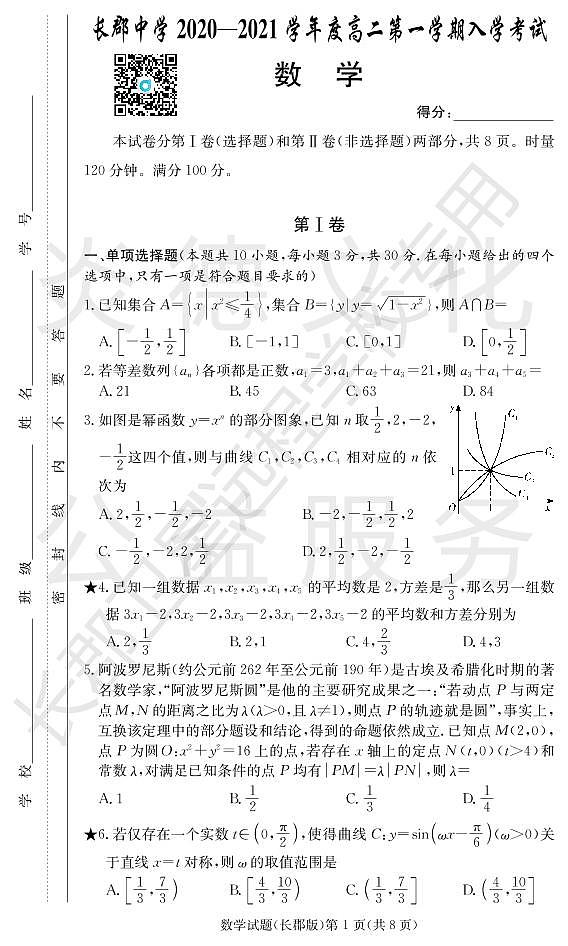 长郡中学 2020—2021 学年度高二第一学期入学考试
数 学
得分:
本试卷分第Ⅰ卷(选择题)和第Ⅱ卷(非选择题)两部分,共 8 页。时量
120 分钟。满分 100 分。
第Ⅰ卷
一、单项选择题(本题共 10 小题,每小题 3 分,共 30 分.在每小题给出的四个
选项中,只有一项是符合题目要求的)
1.已知集合 A={x|x²≤1/4},集合 B={y|y=√(1-x²)},则 A∩B=
A.[-1/2,1/2] B.[-1,1] C.[0,1] D.[0,1/2]
2.若等差数列{aₙ}各项都是正数,a₁=3,a₁+a₂+a₃=21,则 a₃+a₄+a₅=
A.21 B.45 C.63 D.84
3.如图是幂函数 y=xⁿ 的部分图象,已知 n 取1/2,2,-2,
-1/2这四个值,则与曲线 C₁,C₂,C₃,C₄ 相对应的 n 依
次为
y C₁ C₂ C₃ C₄ 1 O x
A.2,1/2,-1/2,-2 B.-2,-1/2,1/2,2
C.-1/2,-2,2,1/2 D.2,1/2,-2,-1/2
★4.已知一组数据 x₁,x₂,x₃,x₄,x₅ 的平均数是 2,方差是1/3,那么另一组数
据 3x₁-2,3x₂-2,3x₃-2,3x₄-2,3x₅-2 的平均数和方差分别为
A.2,1/3 B.2,1 C.4,2/3 D.4,3
5.阿波罗尼斯(约公元前 262 年至公元前 190 年)是古埃及希腊化时期的著
名数学家,“阿波罗尼斯圆”是他的主要研究成果之一:“若动点 P 与两定
点 M,N 的距离之比为 λ(λ>0,且 λ≠1),则点 P 的轨迹就是圆”,事实上,
互换该定理中的部分题设和结论,得到的命题依然成立.已知点 M(2,0),
点 P 为圆 O:x²+y²=16 上的点,若存在 x 轴上的定点 N(t,0)(t>4)和
常数 λ,对满足已知条件的点 P 均有|PM|=λ|PN|,则 λ=
A.1 B.1/2 C.1/3 D.1/4
★6.若仅存在一个实数 t∈(0,π/2),使得曲线 C:y=sin(ωx-π/6)(ω>0)关
于直线 x=t 对称,则 ω 的取值范围是
A.[1/3,7/3) B.[4/3,10/3) C.(1/3,7/3] D.(4/3,10/3]
数学试题(长郡版)第 1 页(共 8 页)
学 校 班 级 姓 名 学 号
密 封 线 内 不 要 答 题